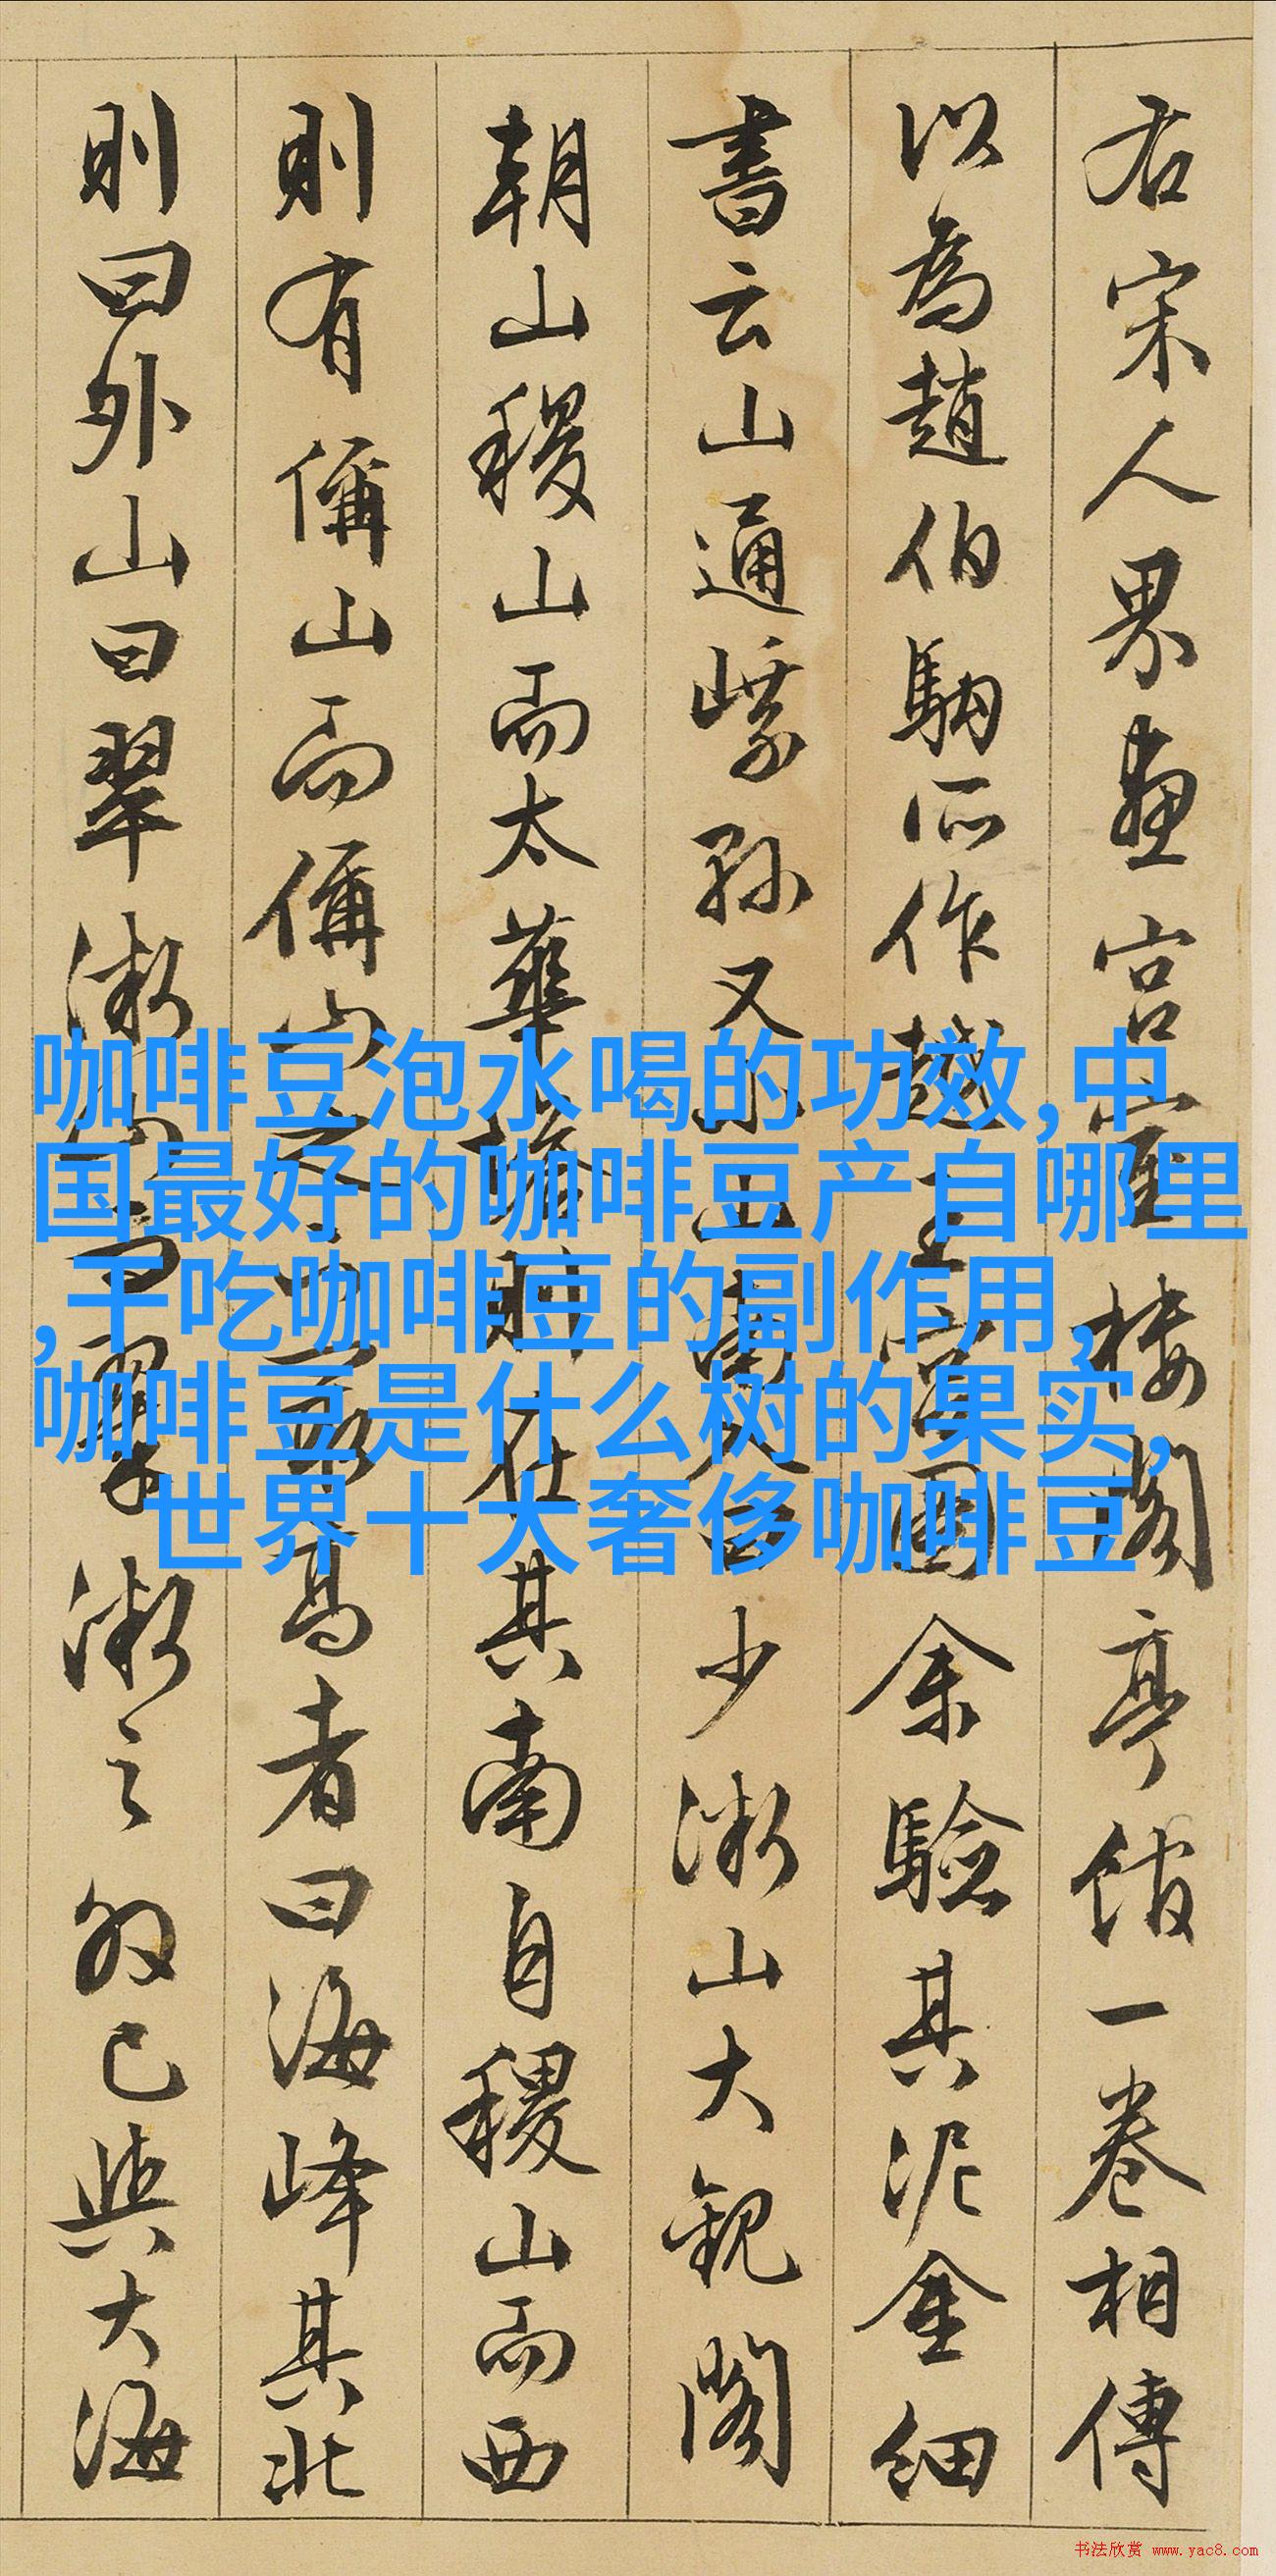 右宋人界畫宮室樓閣亭館一卷相傳
以為趙伯駒所作越王宮圖余驗其泥金細
書云山通
又
山
少微山大觀閣
朝山稷山而太華
則在其南自稷山而西
則有偁山而偁山
高者曰海峰其北
則曰外山曰翠微
曰翠微之
與大海
咖啡豆泡水喝的功效,中
国最好的咖啡豆产自哪里
,干吃咖啡豆的副作用,
咖啡豆是什么树的果实,
世界十大奢侈咖啡豆
书法欣赏 www.yac8.com